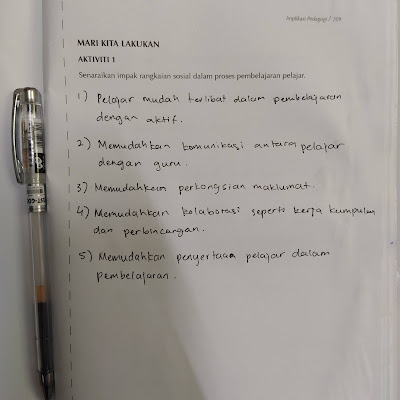 Implikasi Pedagogi / 209
MARI KITA LAKUKAN
AKTIVITI 1
Senaraikan impak rangkaian sosial dalam proses pembelajaran pelajar.
1) Pelajar mudah terlibat dalam pembelajaran
dengan aktif.
2) Memudahkan komunikasi antara pelajar
dengan guru.
3) Memudahkan perkongsian maklumat.
4) Memudahkan kolaborasi seperti kerja kumpulan
dan perbincangan.
5) Memudahkan penyertaan pelajar dalam
pembelajaran.